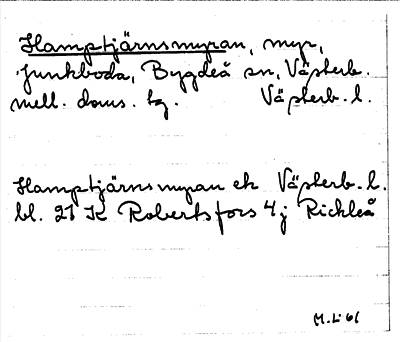 Hamptjärnsmyran, myr,
Junkboda, Bygdeå sn, Västerb.
mell. doms. tg. Västerb. l.
Hamptjärnsmyran ek Västerb. l.
bl. 21 K Robertsfors 4 j Rickleå
M. L. 61